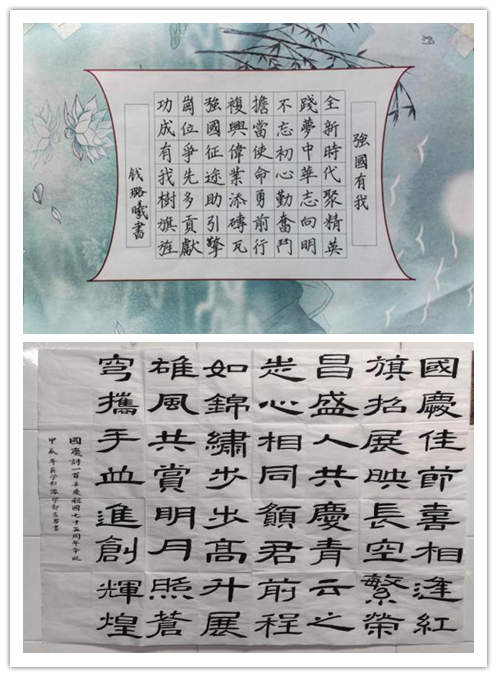 強國有我
全新時代聚精英
踐夢中華志向明
不忘初心勤奮鬥
擔當使命勇前行
複興偉業添磚瓦
強國征途助引擎
崗位爭先多貢獻
功成有我樹旗旌
钱璐曦書
國慶佳節喜相逢紅
旗招展映長空繁榮
昌盛人共慶青云之
志心相同願君前程
如錦繡步步高升展
雄風共賞明月照蒼
穹攜手並進創輝煌
國慶詩一首喜慶祖國七十五周年
甲辰年